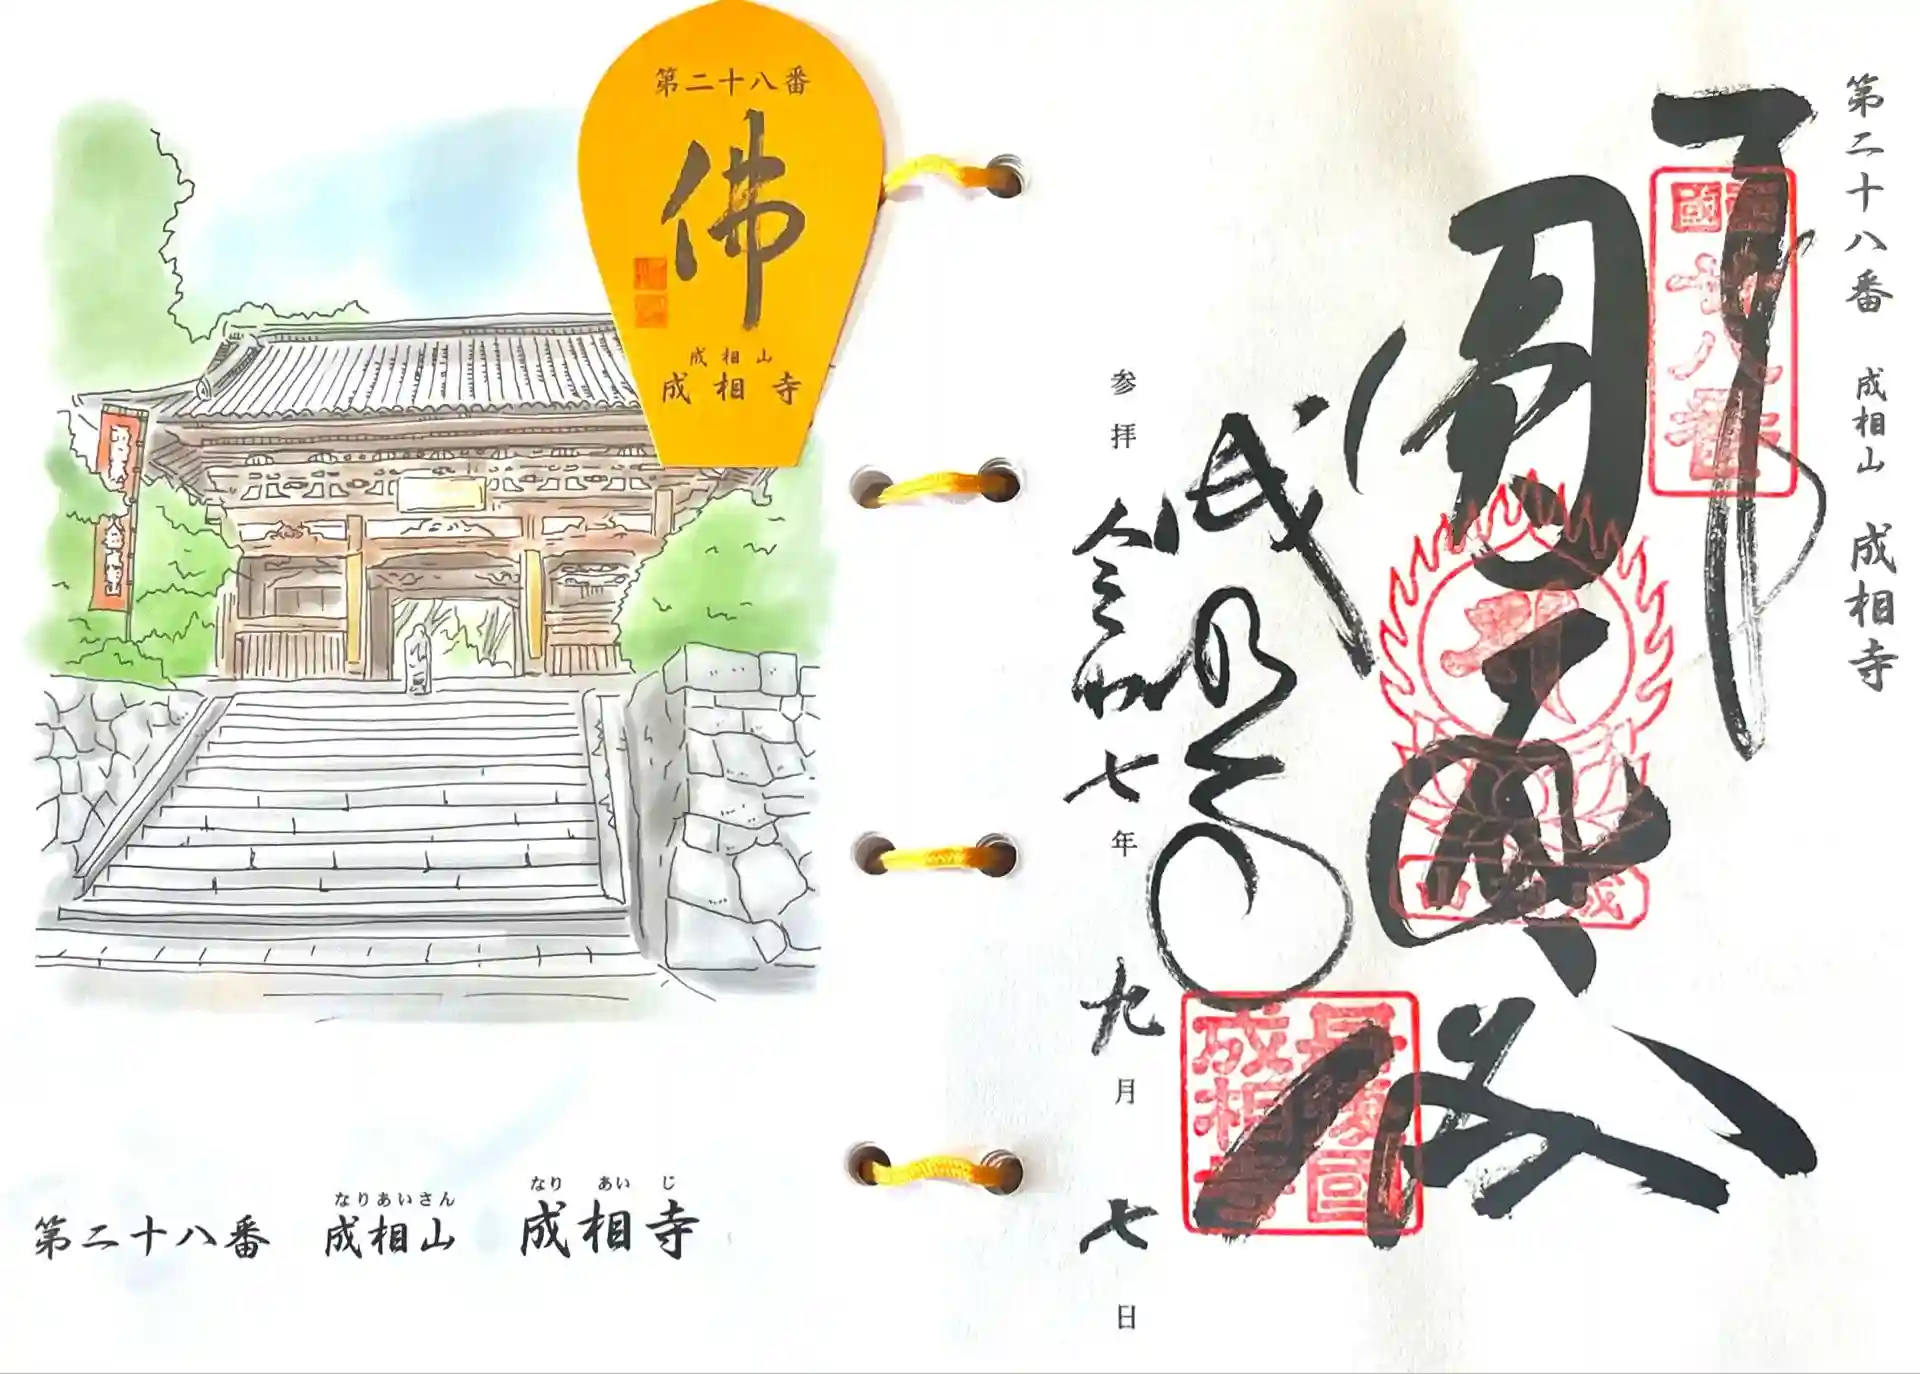 第二十八番
佛
成相山
成相寺
なりあいさん
なり あい じ
第二十八番 成相山 成相寺
第二十八番 成相山 成相寺
西國
廿八番
圓通殿
成相山
成相寺
丹後國
成相寺
参拝 令和七年 九月 七日